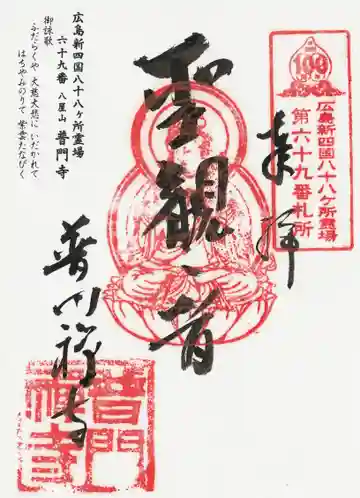 広島新四国八十八ヶ所霊場
第六十九番札所
奉拝
聖観音
普門禅寺
広島新四国八十八ヶ所霊場
六十九番 八屋山 普門寺
御詠歌
ふだらくや 大慈大悲に いだかれて
はちやみのりて 紫雲たなびく
普門
禅寺